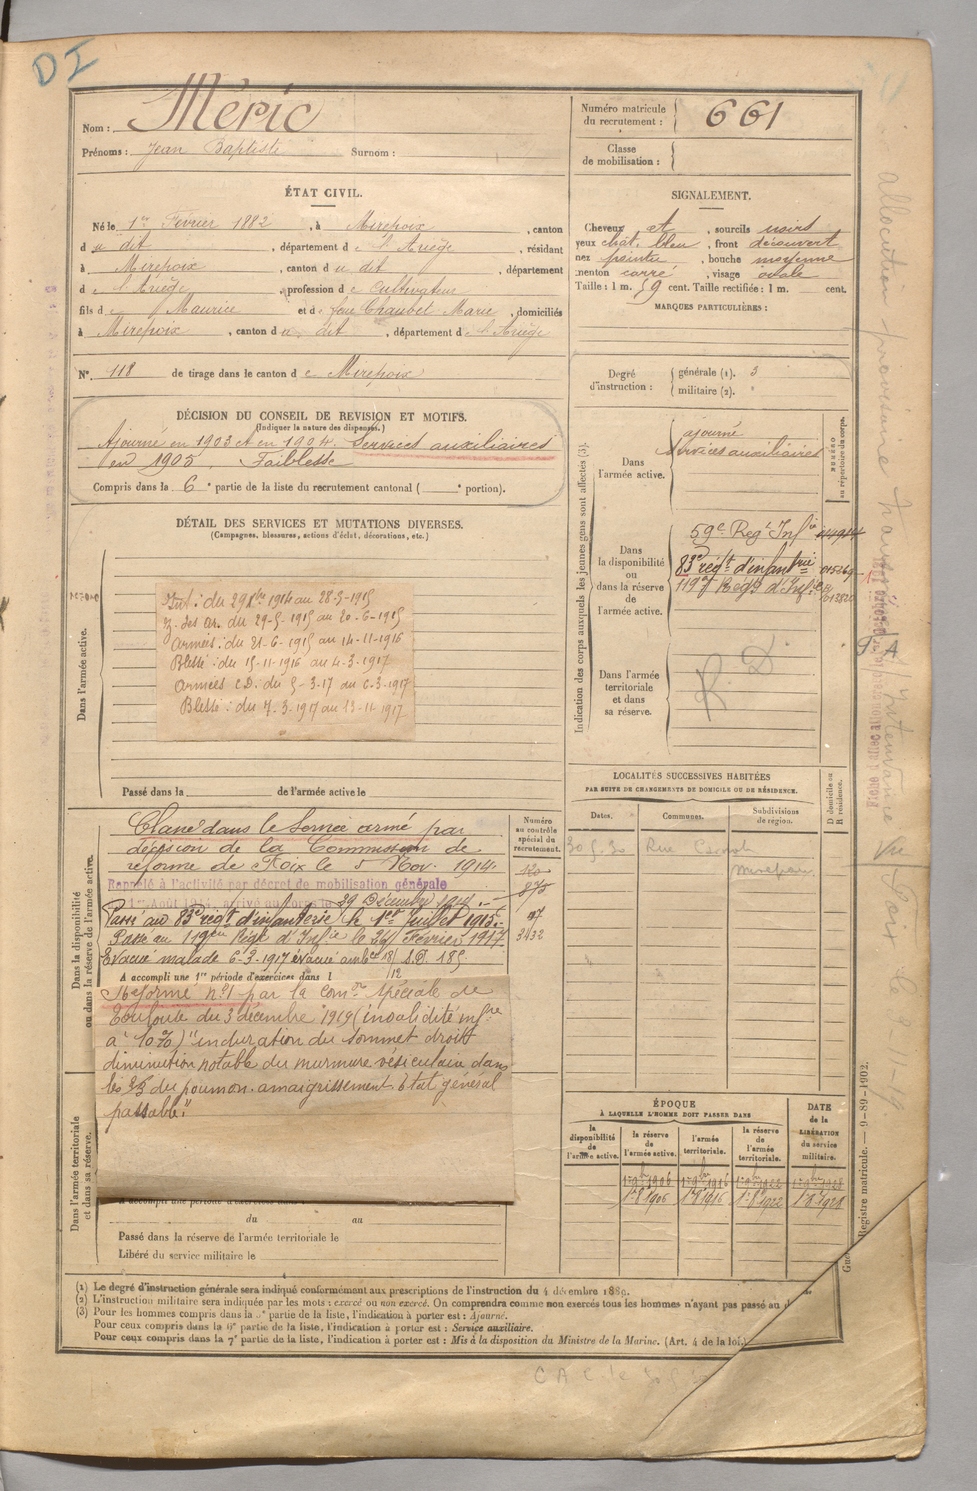 DI
Nom : Méric
Prénoms : Jean Baptiste Surnom :
Numéro matricule du recrutement : 661
Classe de mobilisation :
ÉTAT CIVIL.
Né le 1er Février 1882, à Mirepoix, canton
du dit, département de l'Ariège, résidant
à Mirepoix, canton du dit, département
de l'Ariège, profession de Cultivateur
fils de Maurice et de feue Chaubet Marie, domiciliés
à Mirepoix, canton du dit, département de l'Ariège
N° 118 de tirage dans le canton de Mirepoix
SIGNALEMENT.
Cheveux et, sourcils noirs
yeux chât. bleu, front découvert
nez pointu, bouche moyenne
menton carré, visage ovale
Taille : 1 m. 59 cent. Taille rectifiée : 1 m. cent.
MARQUES PARTICULIÈRES :
Degré d'instruction : générale (1). 3
militaire (2).
DÉCISION DU CONSEIL DE REVISION ET MOTIFS.
(Indiquer la nature des dispenses.)
Ajourné en 1903 et en 1904. Services auxiliaires
en 1905. Faiblesse
Compris dans la 6e partie de la liste du recrutement cantonal ( e portion).
DÉTAIL DES SERVICES ET MUTATIONS DIVERSES.
(Campagnes, blessures, actions d'éclat, décorations, etc.)
Dans l'armée active.
Int. : du 29 Xbre 1914 au 28-5-1915
Z. des ar. du 29-5-1915 au 20-6-1915
Armées : du 21-6-1915 au 14-11-1916
Blessé : du 15-11-1916 au 4-3-1917
Armées C.D. : du 5-3-17 au 6-3-1917
Blessé : du 7-3-1917 au 13-11-1917
Passé dans la de l'armée active le
Indication des corps auxquels les jeunes gens sont affectés (3).
NUMÉRO au répertoire du corps.
Dans l'armée active.
ajourné
Services auxiliaires
Dans la disponibilité ou dans la réserve de l'armée active.
59e Régt Infie
83e régt d'infanterie
119e Régt d'Infie
Dans l'armée territoriale et dans sa réserve.
R. D.
LOCALITÉS SUCCESSIVES HABITÉES
PAR SUITE DE CHANGEMENTS DE DOMICILE OU DE RÉSIDENCE.
Dates. Communes. Subdivisions de région. D domicile ou R résidence.
30.5.30 Rue
Mirepoix
Dans la disponibilité ou dans la réserve de l'armée active.
Numéro au contrôle spécial du recrutement.
Classé dans le Service armé par
décision de la Commission de
réforme de Foix le 5 Nov. 1914.
Rappelé à l'activité par décret de mobilisation générale
du 1er Août 1914, arrivé au corps le 29 Décembre 1914.
875
Passé au 83e régt d'infanterie le 1er Juillet 1915.
Passé au 119eme Régt d'Infie le 26 Février 1917.
3432
Évacué malade 6-3-1917
A accompli une 1re période d'exercices dans l
Réformé n°1 par la comon spéciale de
Toulouse du 3 décembre 1919 (invalidité infre
à 10%) "induration du sommet droit
diminution notable du murmure vésiculaire dans
les 2/3 du poumon. amaigrissement état général
passable."
Dans l'armée territoriale et dans sa réserve.
du au
Passé dans la réserve de l'armée territoriale le
Libéré du service militaire le
ÉPOQUE
À LAQUELLE L'HOMME DOIT PASSER DANS
la disponibilité de l'armée active. la réserve de l'armée active. l'armée territoriale. la réserve de l'armée territoriale.
DATE de la LIBÉRATION du service militaire.
1r 9bre 1906 1r 9bre 1916 1r 9bre 1922 1r 9bre 1928
1r 8 1906 1r 8 1916 1r 8 1922 1r 8 1928
(1) Le degré d'instruction générale sera indiqué conformément aux prescriptions de l'instruction du 4 décembre 1889.
(2) L'instruction militaire sera indiquée par les mots : exercé ou non exercé. On comprendra comme non exercés tous les hommes n'ayant pas passé au d
(3) Pour les hommes compris dans la 5e partie de la liste, l'indication à porter est : Ajourné.
Pour ceux compris dans la 6e partie de la liste, l'indication à porter est : Service auxiliaire.
Pour ceux compris dans la 7e partie de la liste, l'indication à porter est : Mis à la disposition du Ministre de la Marine. (Art. 4 de la loi.)
Registre matricule. — 9-89-1902.